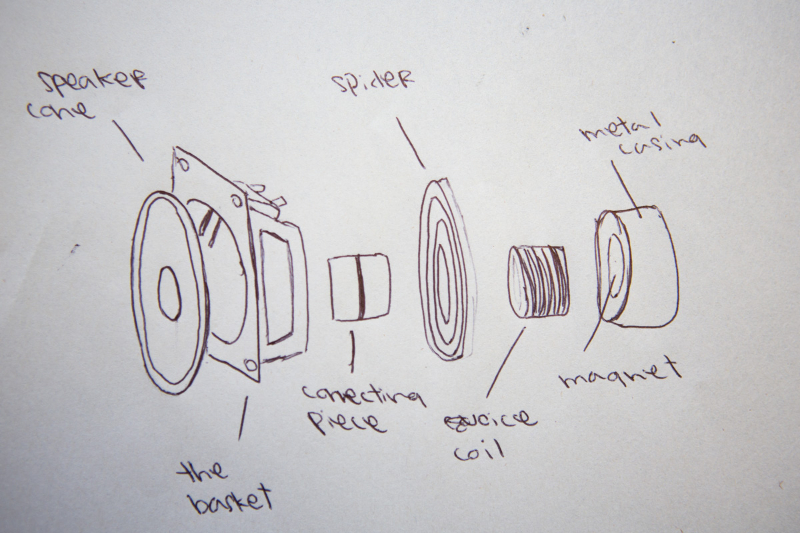 speaker
cone
spider
metal
casing
conecting
piece
voice
coil
magnet
the
basket